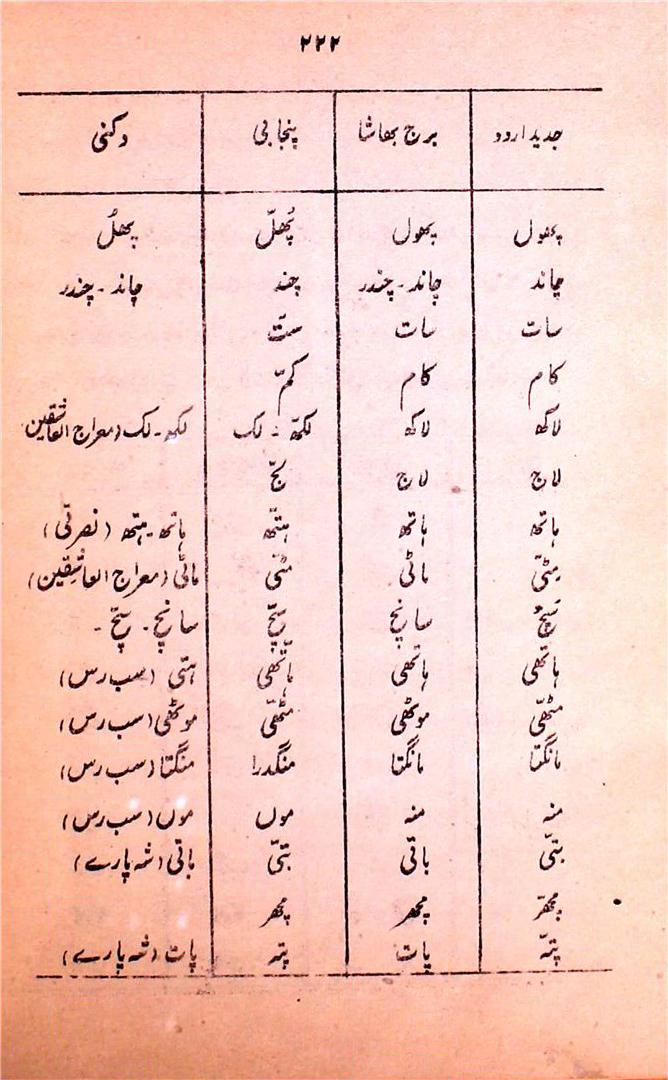 ۲۲۲
جدید اردو برج بھاشا پنجابی دکنی
پھول پھول پُھلّ پھلُ
چاند چاند - چندر چند چاند - چندر
سات سات ستّ
کام کام کمّ
لاکھ لاکھ لکھّ - لک لکھ - لک (معراج العاشقین
لاج لاج لجّ
ہاتھ ہاتھ ہتّھ ہاتھ - ہتھ (نصرتی)
مِٹّی ماٹی مٹّی ماٹی (معراج العاشقین)
سَچُ سانچ سچّ سانچ - سچّ -
ہاتھی ہاتھی ہاتھی ہتی (سب رس)
مٹھّی موٹھی مٹھّی موٹھی (سب رس)
مانگتا مانگتا منگدرا منگتا (سب رس)
منہ منہ موں موں (سب رس)
بتّی باتی بتّی باتی (شہ پارے)
مچھّر مچھر مچھر
پتّہ پات پتہ پات (شہ پارے)